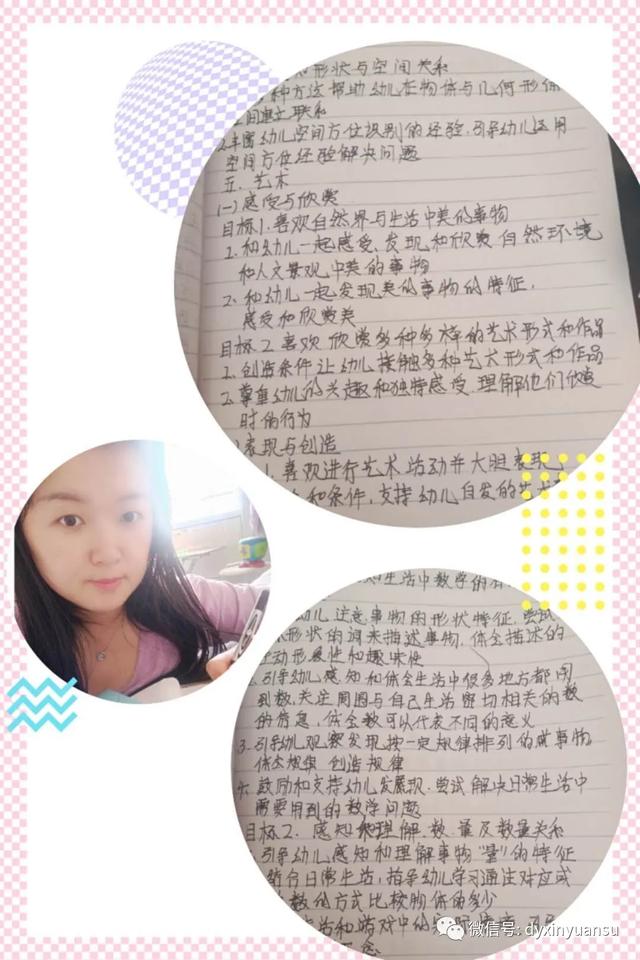 形状与空间关系
种方法帮助幼儿在物体与几何形体
间建立联系
2.丰富幼儿空间方位识别的经验.引导幼儿运用
空间方位经验解决问题
五.艺术
(一)感受与欣赏
目标1.喜欢自然界与生活中美的事物
1.和幼儿一起感受、发现和欣赏自然环境
和人文景观中美的事物
2.和幼儿一起发现美的事物的特征,
感受和欣赏美
目标2.喜欢欣赏多种多样的艺术形式和作品
1.创造条件让幼儿接触多种艺术形式和作品
2.尊重幼儿的兴趣和独特感受.理解他们欣赏
时的行为
表现与创造
1.喜欢进行艺术活动并大胆表现
和条件,支持幼儿自发的艺术
生活中数学的有
幼儿注意事物的形状特征,尝试
形状的词来描述事物,体会描述的
生动形象性和趣味性
2.引导幼儿感知和体会生活中很多地方都用
到数,关注周围与自己生活密切相关的数
的信息,体会数可以代表不同的意义
3.引导幼儿观察发现按一定规律排列的事物,
体会规律 创造规律
4.鼓励和支持幼儿发展现.尝试解决日常生活中
需要用到的数学问题
目标2.感知和理解.数.量及数量关系
引导幼儿感知和理解事物"量"的特征
结合日常生活,指导幼儿学习通过对应或
数的方式比较物体的多少
生活和游戏中的
念
微信号: dyxinyuansu